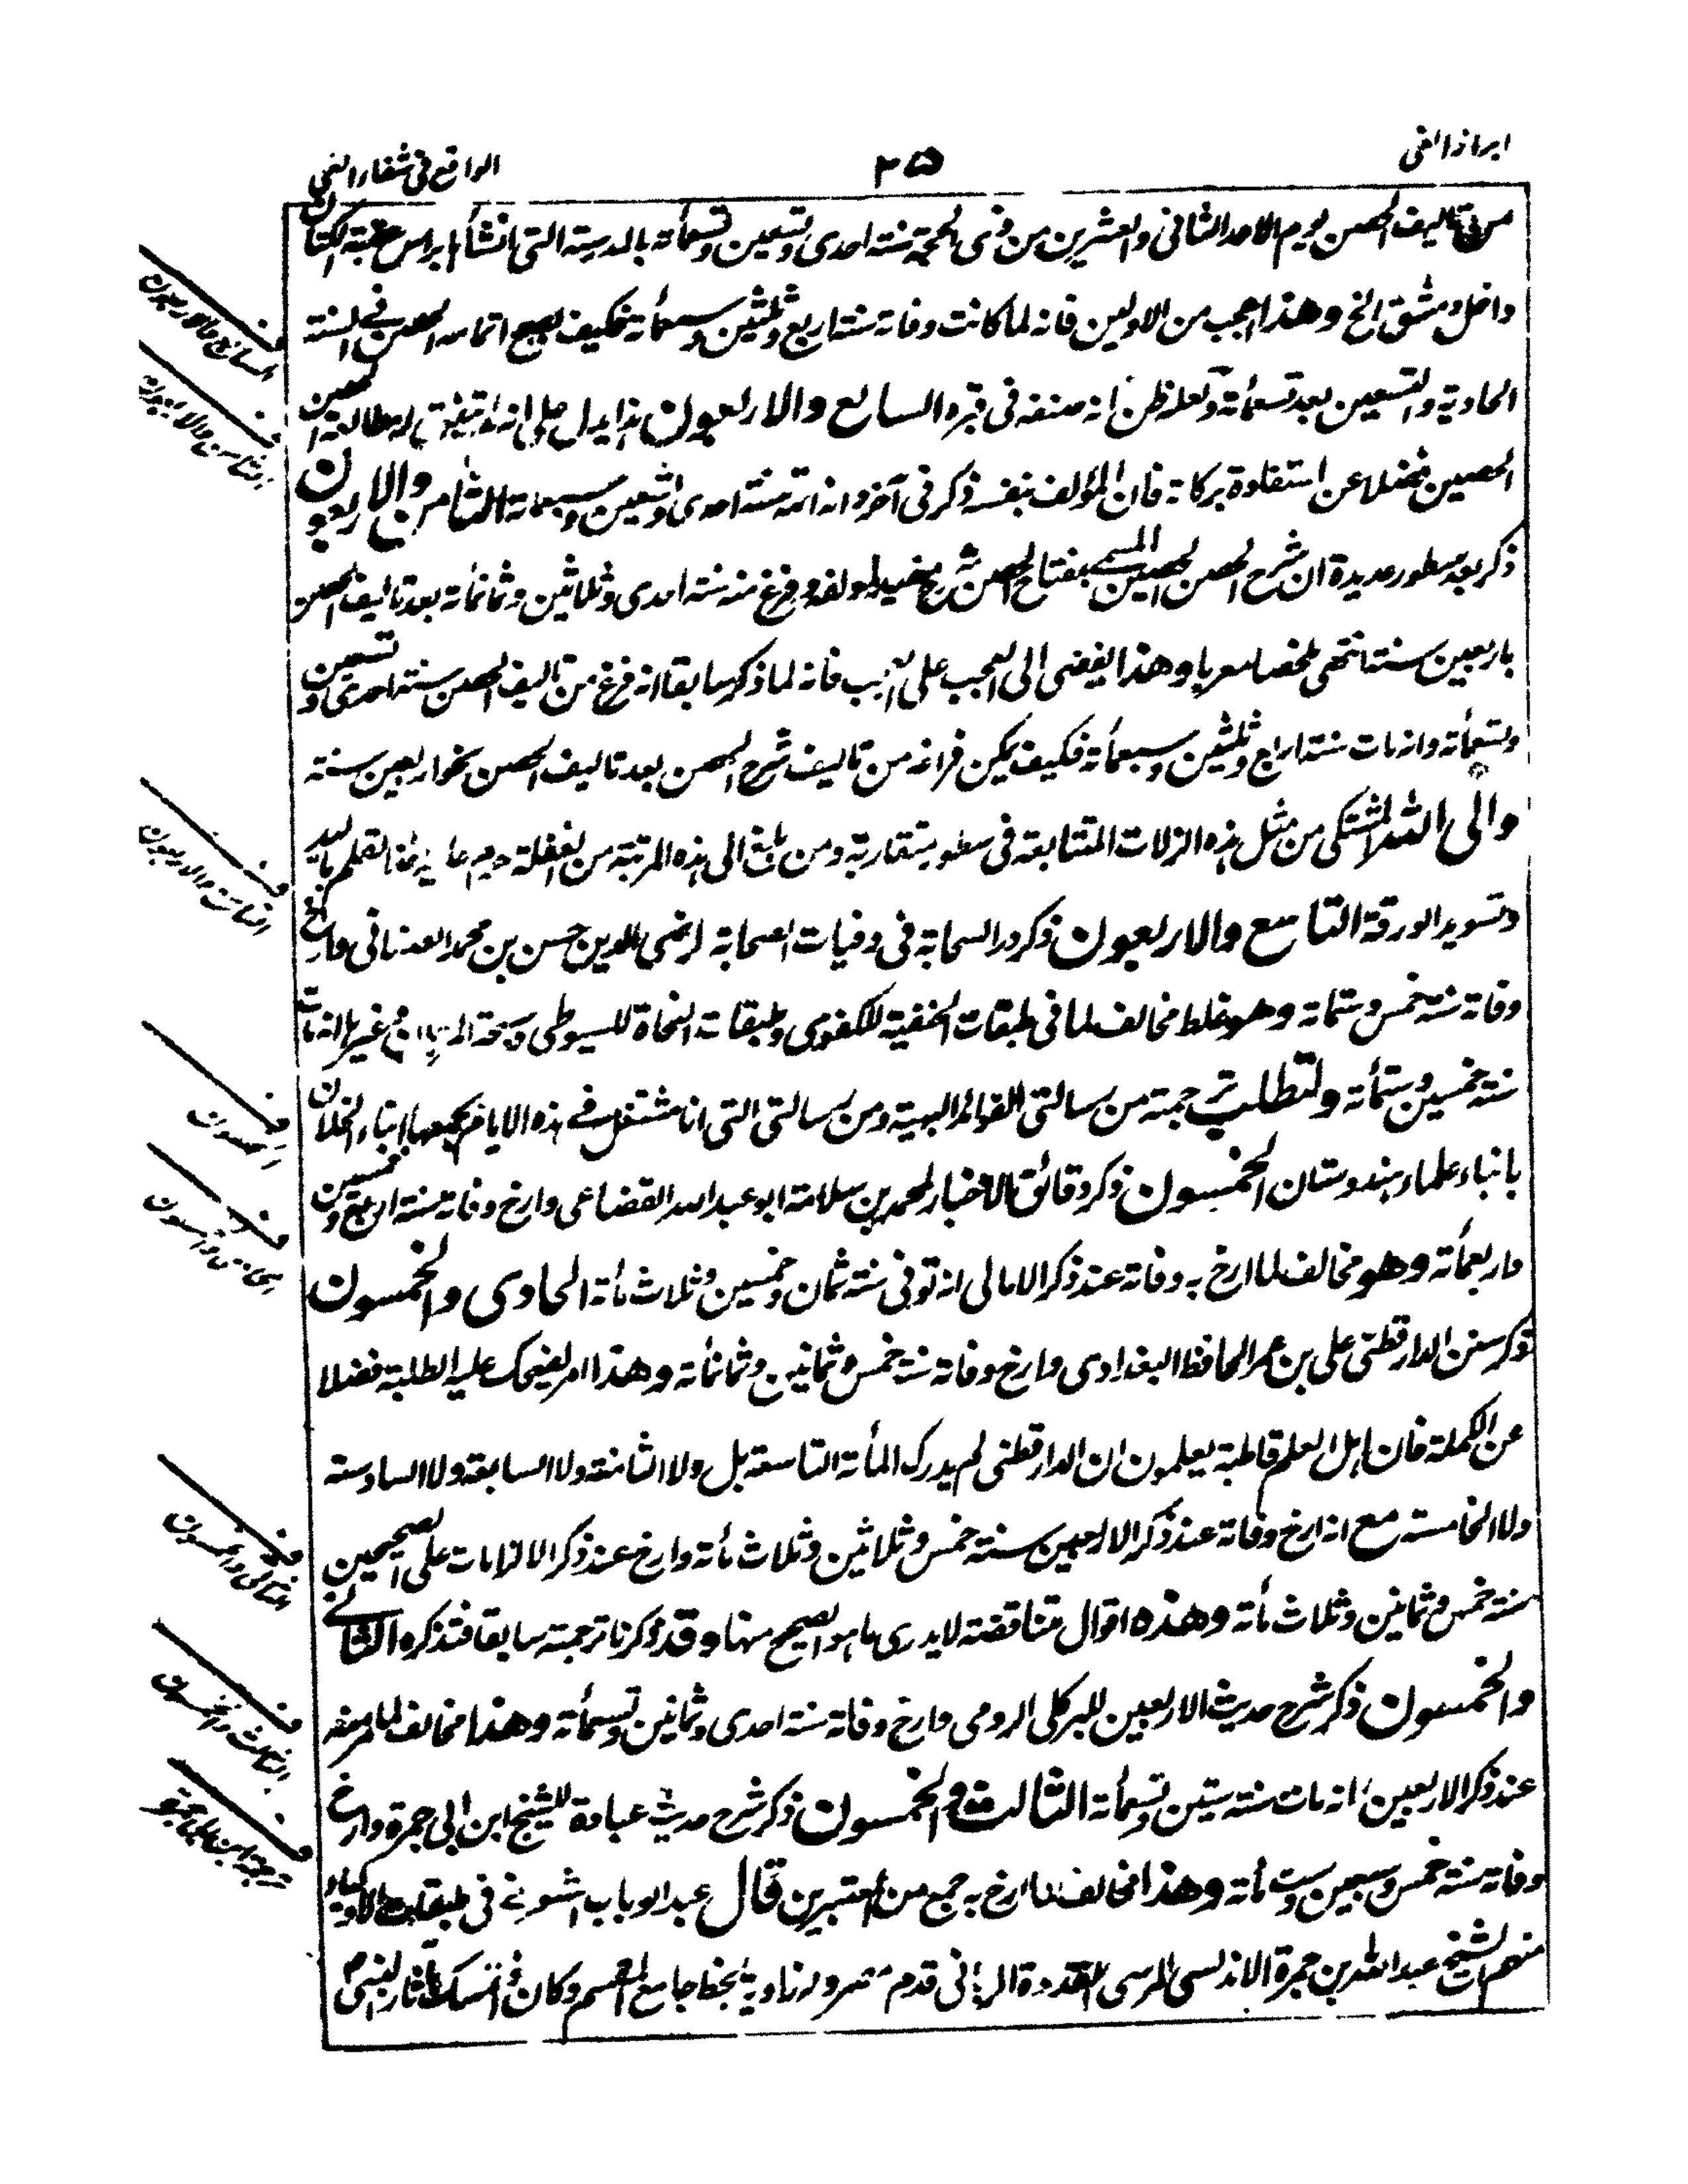 ابراز الغى
٢٥
الواقع فى شفاء العى
من تاليف الحصن يوم الاحد الثانى والعشرين من ذى الحجة سنة احدى وتسعين وتسعمائة بالمدرسة التى انشأها براس عقبة الكتان
داخل دمشق الخ وهذا اعجب من الاولين فانه لما كانت وفاته سنة اربع وثلثين وسبعمائة فكيف يصح اتمامه الحصن فى السنة
الحادية والتسعين بعد تسعمائة ولعله ظن انه صنفه فى قبره السابع والاربعون هذا يدل على انه لم يتفق له مطالعة الحصن
الحصين فضلا عن استفادة بركاته فان المؤلف بنفسه ذكر فى آخره انه اتمه سنة احدى وتسعين وسبعمائة الثامن والاربعون
ذكر بعد سطور عديدة ان شرح الحصن الحصين المسمى بمفتاح الحصن شرح مفيد لمؤلفه وفرغ منه سنة احدى وثلاثين وثمانمائة بعد تاليف الحصن
باربعين سنة انتهى ملخصا معربا وهذا يفضى الى العجب على العجب فانه لما ذكر سابقا انه فرغ من تاليف الحصن سنة احدى وتسعين
وتسعمائة وانه مات سنة اربع وثلثين وسبعمائة فكيف يمكن فراغه من تاليف شرح الحصن بعد تاليف الحصن بنحو اربعين سنة
والى الله المشتكى من مثل هذه الزلات المتتابعة فى سطور متقاربة ومن بلغ الى هذه المرتبة من الغفلة حرم عليه اخذ القلم باليد
وتسويد الورقة التاسع والاربعون ذكر در السحابة فى وفيات الصحابة لرضى الدين حسن بن محمد الصغانى وارخ
وفاته سنة خمس وستمائة وهو غلط مخالف لما فى طبقات الحنفية للكفوى وطبقات النحاة للسيوطى وغيرها انه مات
سنة خمسين وستمائة ولتطلب ترجمته من رسالتى الفوائد البهية ومن رسالتى التى انا مشتغل فى هذه الايام بجمعها انباء الخلان
بانباء علماء هندوستان الخمسون ذكر دقائق الاخبار لمحمد بن سلامة ابو عبد الله القضاعى وارخ وفاته سنة اربع وخمسين
واربعمائة وهو مخالف لما ارخ به وفاته عند ذكر الامالى انه توفى سنة ثمان وخمسين وثلاث مائة الحادى والخمسون
ذكر سنن الدارقطنى على بن عمر الحافظ البغدادى وارخ وفاته سنة خمس وثمانين وثمانمائة وهذا امر يضحك عليه الطلبة فضلا
عن الكملة فان اهل العلم قاطبة يعلمون ان الدارقطنى لم يدرك المائة التاسعة بل ولا الثامنة ولا السابعة ولا السادسة
ولا الخامسة مع انه ارخ وفاته عند ذكر الاربعين سنة خمس وثلاثين وثلاث مائة وارخ عند ذكر الالزامات على الصحيحين
سنة خمس وثمانين وثلاث مائة وهذه اقوال متناقضة لا يدرى ما هو الصحيح منها وقد ذكرنا ترجمته سابقا فتذكره الثانى
والخمسون ذكر شرح حديث الاربعين للبركلى الرومى وارخ وفاته سنة احدى وثمانين وتسعمائة وهذا مخالف لما مر منه
عند ذكر الاربعين انه مات سنة ستين وتسعمائة الثالث والخمسون ذكر شرح حديث عبادة للشيخ ابن ابى جمرة وارخ
وفاته سنة خمس وسبعين وست مائة وهذا مخالف لما ارخ به جمع من المعتبرين قال عبد الوهاب الشعرانى فى طبقات الاولياء
منهم الشيخ عبد الله بن جمرة الاندلسى المرسى القدوة الربانى قدم مصر وله زاوية بخط جامع المقسم وكان ذا تمسك بآثار النبى
السابع والاربعون
الثامن والاربعون
التاسع والاربعون
الخمسون
الحادى والخمسون
الثانى والخمسون
الثالث والخمسون
ترجمة ابن ابى جمرة